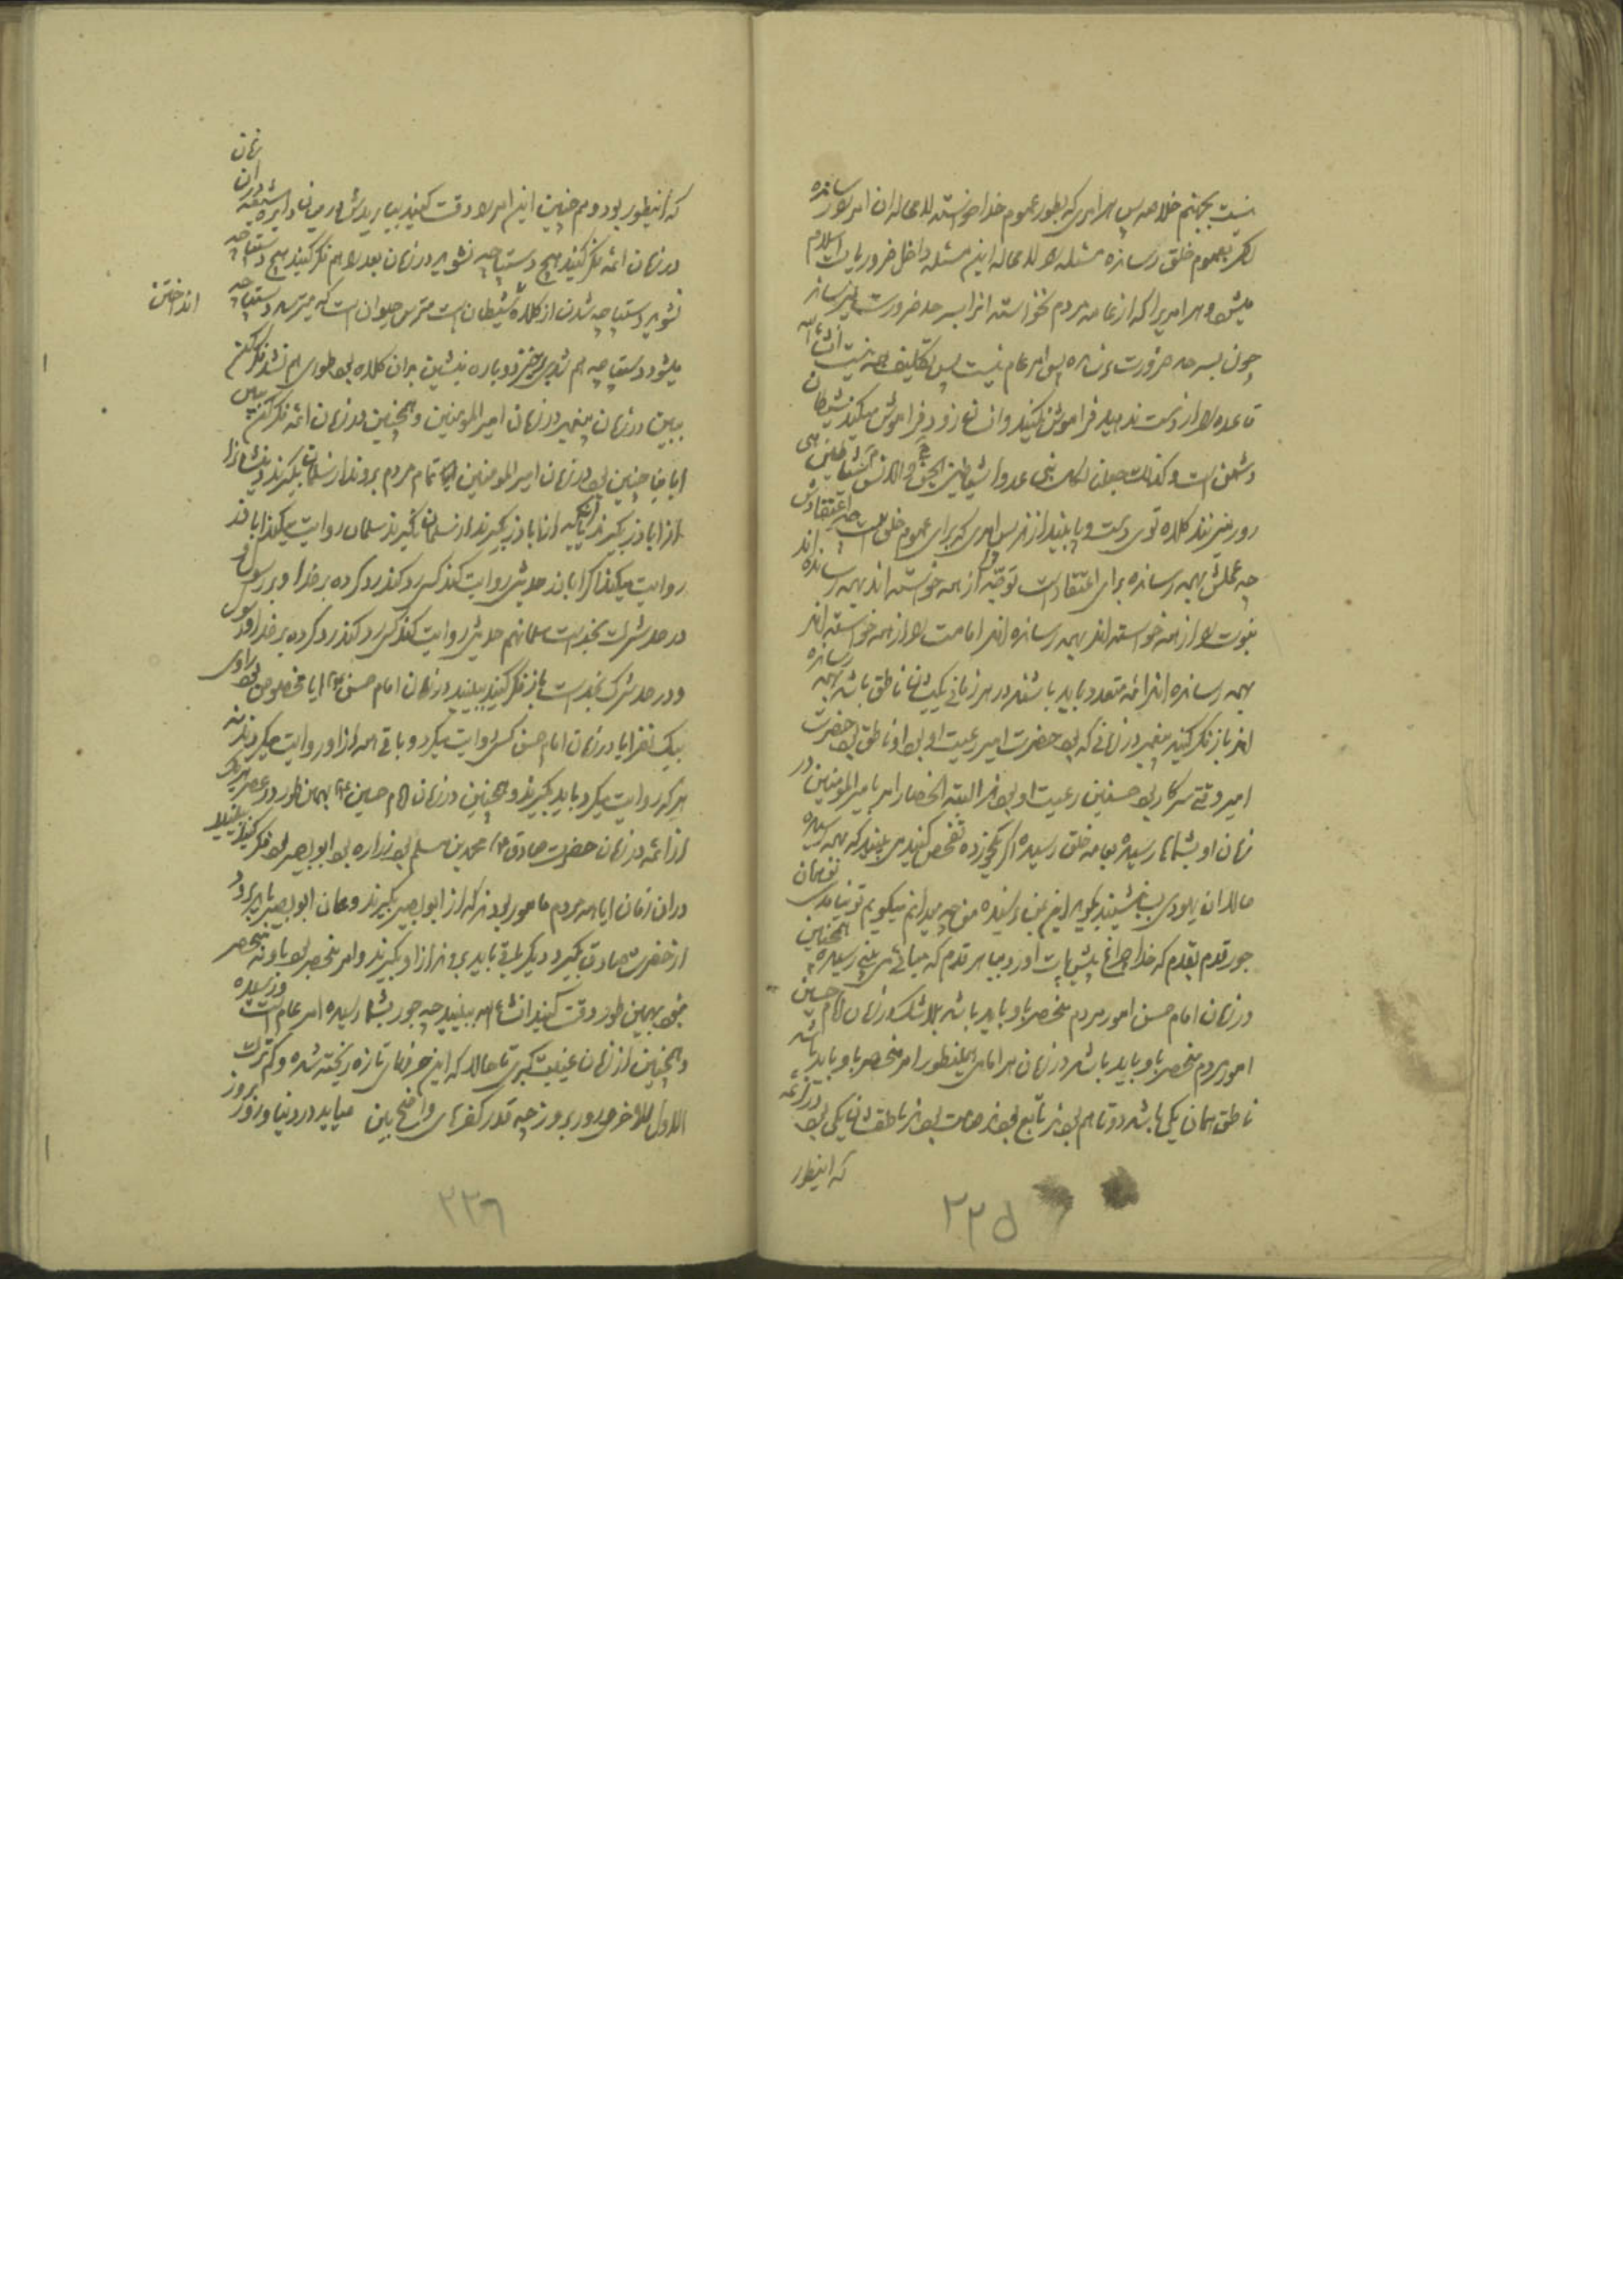 نیست بجهنم خلاصه پس هر امری که بطور عموم خدا خواسته لامحاله ان امر را رسانده
اگر بعموم خلق رسانده مسئله را لامحاله این مسئله داخل ضروریات اسلام
میشود هر امریرا که از عامه مردم نخواسته انرا بسر حد ضرورت نمیرساند
چون بسر حد ضرورت نرسانده پس امر عام نیست پس تکلیف همه نیست انشاءالله
قاعده را از دست ندهید فراموش نکنید و انسان زود فراموش میکند شیطان
دشمن است و کذلک جعلنا لکل نبی عدوا شیاطین الجن و الانس شیاطین هی
زور میزنند کلاه توی دست و پا بیندازند پس امری که برای عموم خلق است چه اعتقادش
چه عملش بهمه رسانده برای اعتقادات توحید را از همه خواسته اند بهمه رسانده اند
نبوت را از همه خواسته اند بهمه رسانده اند امامت را از همه خواسته اند
بهمه رسانده اند ائمه متعدد باید باشند در هر زمانی یکیشان ناطق باشد بهمه رسانده
اند باز فکر کنید پیغمبر در زمانی که بود حضرت امیر رعیت او بود او ناطق بود حضرت
امیر وقتی سر کار بود حسنین رعیت او بودند البته انحصار امر بامیرالمؤمنین در
زمان او بشماها رسیده بعامه خلق رسیده اگر یکخورده تفحص کنید می بینید که بهمه رسیده
حالا ان یهودی بنشیند بگوید این بمن نرسیده من چه میدانم میگویم تو نیامدی تو همان
جور قدم بقدم که خدا چراغ پیش پات اورد بیا هر قدم که میائی می بینی رسیده همچنین
در زمان امام حسن امور مردم منحصر باو باید باشد بلاشک در زمان امام حسین
امور مردم منحصر باو باید باشد در زمان هر امامی همینطور امر منحصر باو باید باشد
ناطق همان یکی باشد دوتا هم بودند تابع بودند صامت بودند ناطقشان یکی بود در ائمه
که اینطور
۲۲۵
که اینطور بود و هم چنین این امر را دقت کنید بیارید در میان دایره شیعه در ان زمان
در زمان ائمه فکر کنید هیچ دستپاچه نشوید در زمان بعد را هم فکر کنید هیچ دستپاچه
نشوید دستپاچه شدن از کلاه شیطان است مترس حیوان است که میترسد دستپاچه
میشود دستپاچه هم شدی برخیز دوباره بنشین بران کلاه بچه طوری هم نشد فکر کن
انداختن
ببین در زمان پیغمبر در زمان امیرالمؤمنین و همچنین در زمان ائمه فکر کن ببین
ایا چنین بود در زمان امیرالمؤمنین که تمام مردم بروند از سلمان بگیرند
از اباذر بگیرند یا انکه از اباذر بگیرند از سلمان نگیرند سلمان روایت میکند اباذر
روایت میکند اگر اباذر حدیثی روایت کند کسی رد کند رد کرده بر خدا و بر رسول و
در حد شرک بخداست سلمان هم حدیثی روایت کند کسی رد کند رد کرده بر خدا و رسول
و در حد شرک بخداست باز فکر کنید ببینید در زمان امام حسن ایا مخصوص بود راوی
بیک نفر ایا در زمان امام حسن کسی روایت میکرد و باقی همه از او روایت میکردند نه
هر که روایت میکرد باید بگیرند و همچنین در زمان امام حسین بهمین طور در عصر هریک
از ائمه در زمان حضرت صادق محمد بن مسلم بود زراره بود ابو بصیر بود فکر کنید ببینید
در ان زمان ایا همه مردم مامور بودند که از ابو بصیر بگیرند و همان ابو بصیر باید برود
از حضرت صادق بگیرد دیگر باقی باید بروند از او بگیرند و امر منحصر بود باو نه منحصر
نبود بهمین طور دقت کنید انشاءالله ببینید چه جور بشما رسیده امر عام است و رسیده
و همچنین از زمان غیبت کبری تا حالا که این حرفهای تازه ریخته شده و کم ترک
الاول للاخر و روز بروز چه قدر کفرهای واضح بین میاید در دنیا و روز بروز
۲۲۶